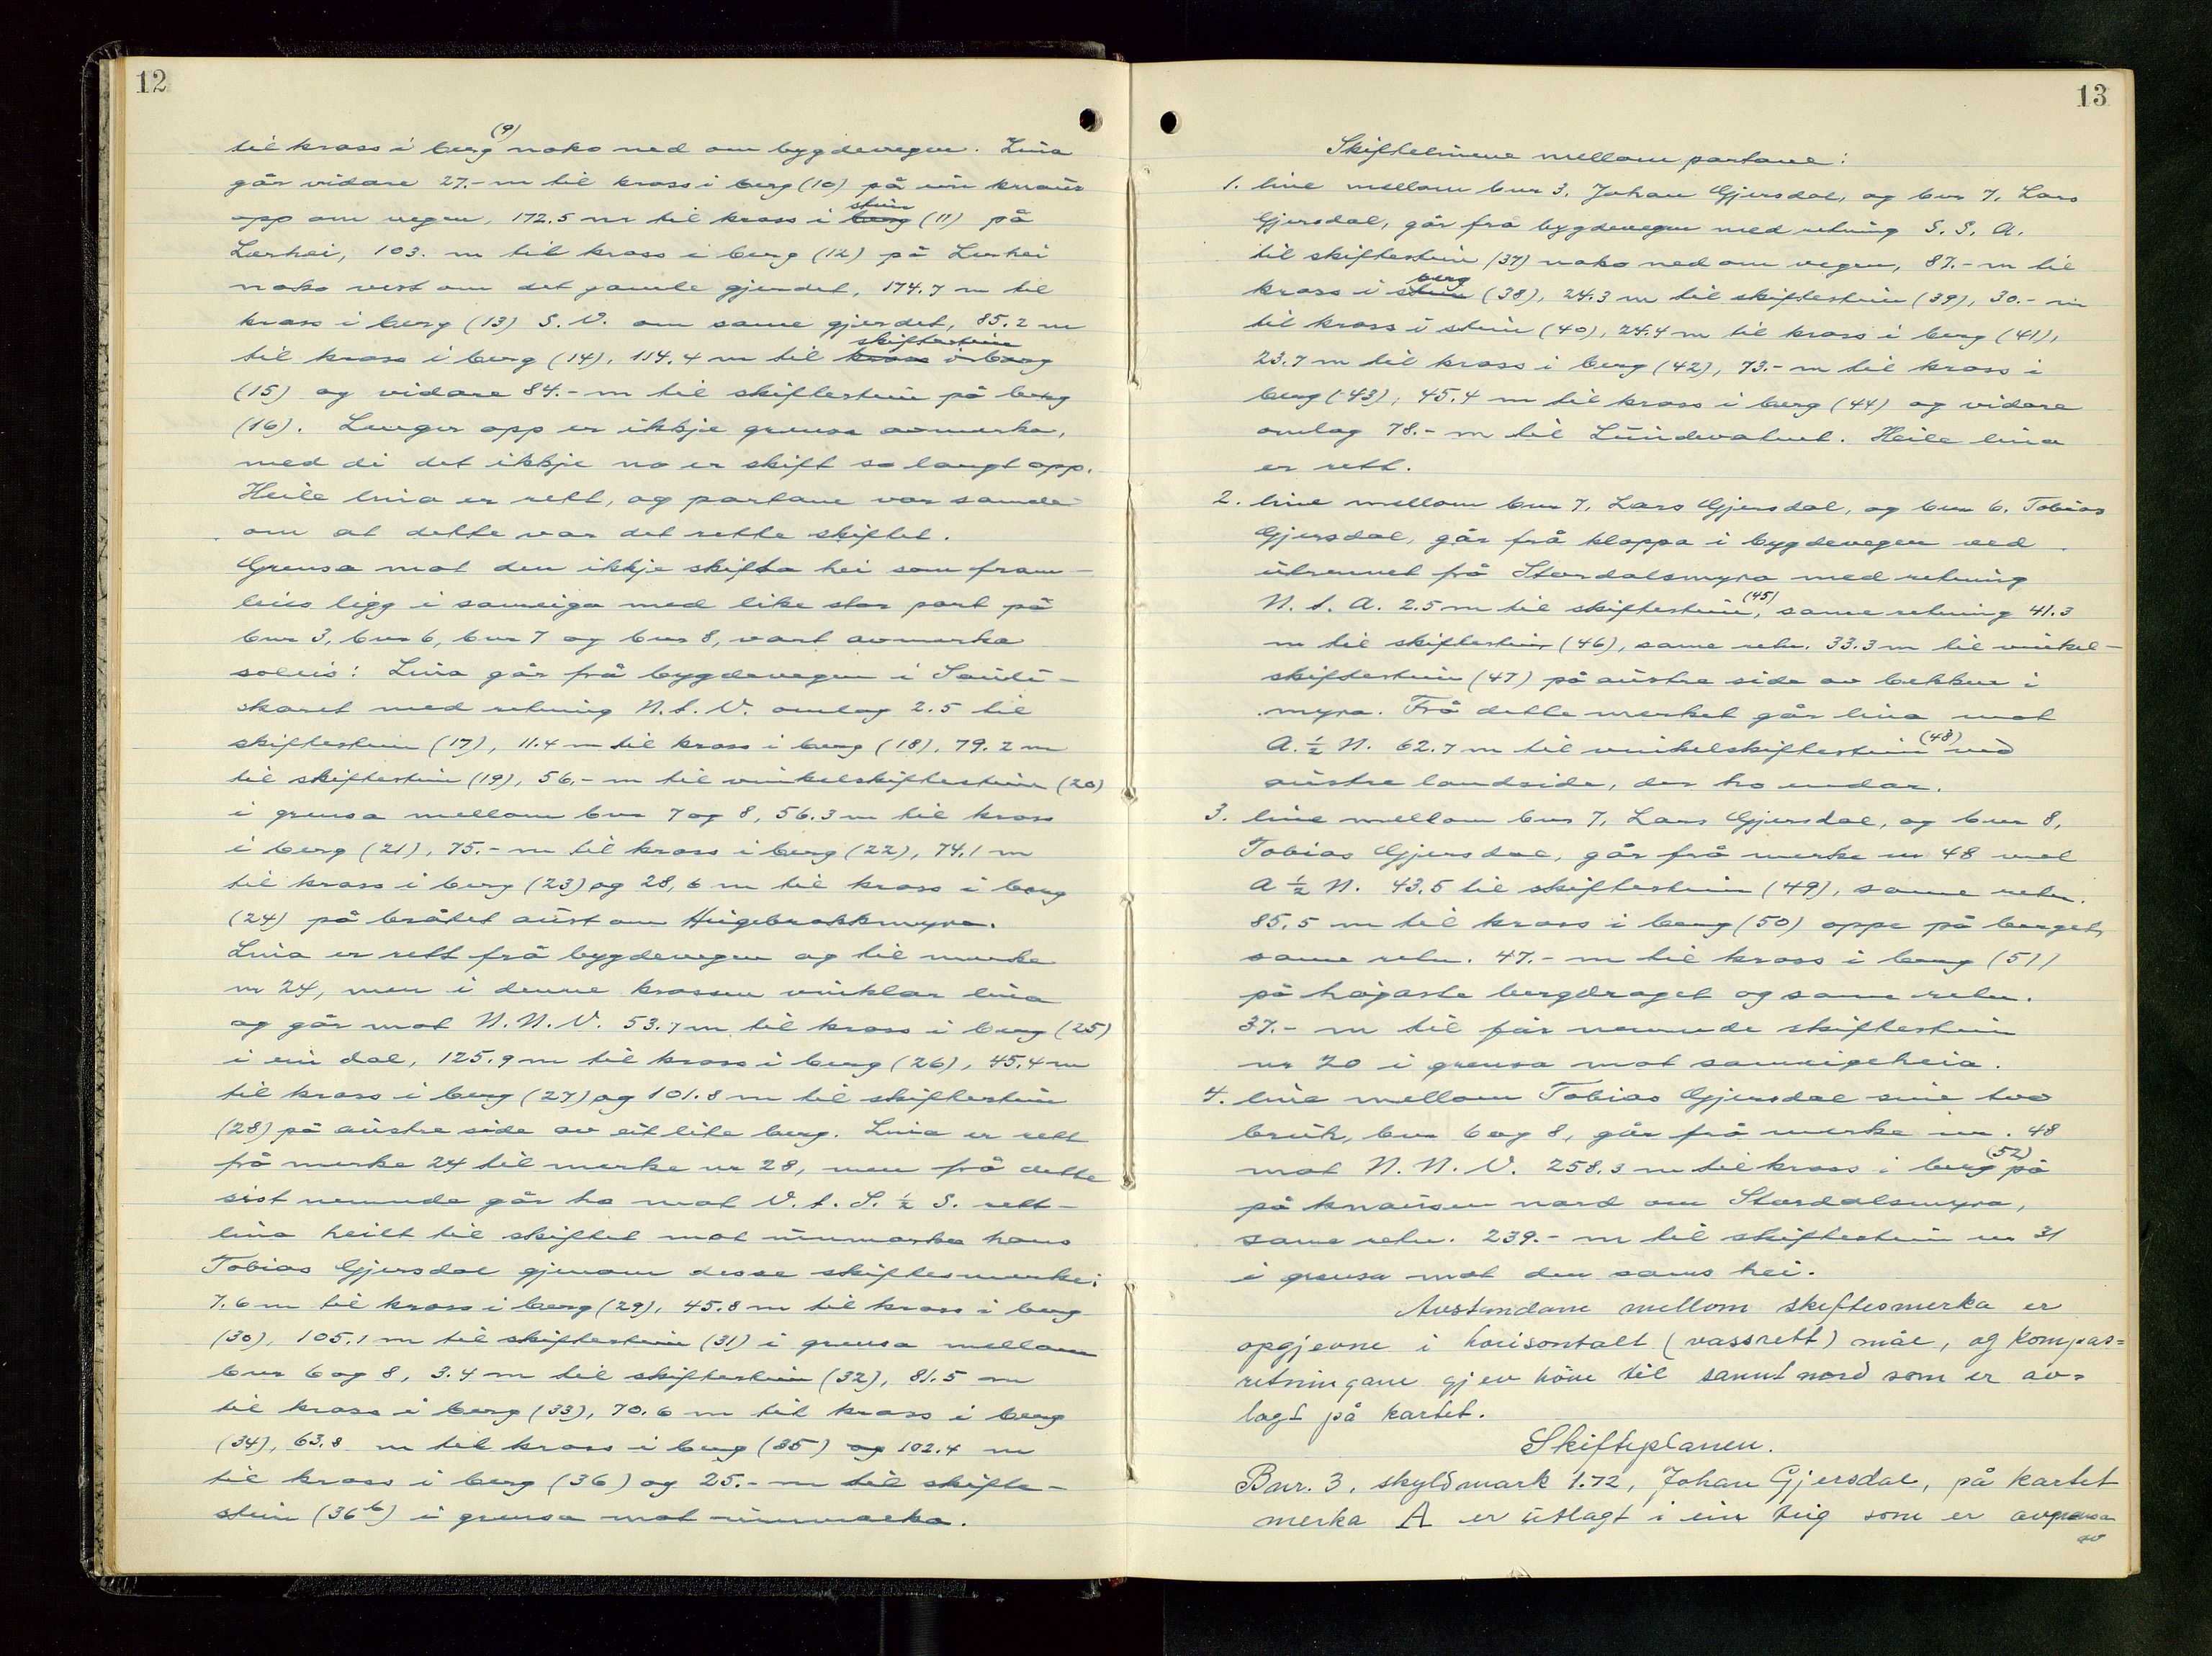 12
til kross i berg (9) noko ned om bygdevegen. Lina
går vidare 27.- m til kross i berg (10) på ein knaus
opp om vegen, 172.5 m til kross i berg stein (11) på
Lerhei, 103. m til kross i berg (12) på Lerhei
noko vest om det gamle gjerdet, 174.7 m til
kross i berg (13) S.V. om same gjerdet, 85.2 m
til kross i berg (14), 114.4 m til kross i berg skiftestein
(15) og vidare 84.- m til skiftestein på berg
(16). Lenger opp er ikkje grensa avmerka,
med di det ikkje no er skift so langt opp.
Heile lina er rett, og partane var samde
om at dette var det rette skiftet.
Grensa mot den ikkje skifta hei som fram-
leis ligg i sameiga med like stor part på
bnr 3, bnr 6, bnr 7 og bnr 8, vart avmerka
soleis: Lina går frå bygdevegen i
skaret med retning N.t.V. omlag 2.5 til
skiftestein (17), 11.4 m til kross i berg (18), 79.2 m
til skiftestein (19), 56.- m til vinkelskiftestein (20)
i grensa mellom bnr 7 og 8, 56.3 m til kross
i berg (21), 75.- m til kross i berg (22), 74.1 m
til kross i berg (23) og 28,6 m til kross i berg
(24) på bråtet aust om Heigebrokkmyra.
Lina er rett frå bygdevegen og til merke
nr 24, men i denne krossen vinklar lina
og går mot N.N.V. 53.7 m til kross i berg (25)
i ein dal, 125.9 m til kross i berg (26), 45.4 m
til kross i berg (27) og 101.8 m til skiftestein
(28) på austre side av eit lite berg. Lina er rett
frå merke 24 til merke nr 28, men frå dette
sist nemnde går ho mot V.t.S. ½ S. rett-
lina heilt til skiftet mot innmarka hans
Tobias Gjersdal gjenom desse skiftesmerke:
7.6 m til kross i berg (29), 45.8 m til kross i berg
(30), 105.1 m til skiftestein (31) i grensa mellom
bnr 6 og 8, 3.4 m til skiftestein (32), 81.5 m
til kross i berg (33), 70.6 m til kross i berg
(34), 63.8 m til kross i berg (35) og 102.4 m
til kross i berg (36) og 25.- m til skifte-
stein (36b) i grensa mot innmarka.
13
Skiftelinene mellom partane:
1. line mellom bnr 3, Johan Gjersdal, og bnr 7, Lars
Gjersdal, går fra bygdevegen med retning S.S.A.
til skiftestein (37) noko ned om vegen, 87.- m til
kross i stein berg (38), 24.3 m til skiftestein (39), 30.- m
til kross i stein (40), 24.4 m til kross i berg (41),
23.7 m til kross i berg (42), 73.- m til kross i
berg (43), 45.4 m til kross i berg (44) og vidare
omlag 78.- m til Lundevatnet. Heile lina
er rett.
2. line mellom bnr 7, Lars Gjersdal, og bnr 6, Tobias
Gjersdal, går frå kloppa i bygdevegen ved
utrennet frå Stordalsmyra med retning
N.t.A. 2.5 m til skiftestein (45), same retning 41.3
m til skiftestein (46), same retn. 33.3 m til vinkel-
skiftestein (47) på austre side av bekken i
myra. Frå dette merket går lina mot
A. ½ N. 62.7 m til vinkelskiftestein (48) ved
austre landside, der ho endar.
3. line mellom bnr 7, Lars Gjersdal, og bnr 8,
Tobias Gjersdal, går frå merke nr 48 mot
A ½ N. 43.5 til skiftestein (49), same retn.
85.5 m til kross i berg (50) oppe på berget,
same retn. 47.- m til kross i berg (51)
på høgaste bergdraget og same retn.
37.- m til før nemnde skiftestein
nr 20 i grensa mot sameigeheia.
4. line mellom Tobias Gjersdal sine tvo
bruk, bnr 6 og 8, går frå merke nr. 48
mot N.N.V. 258.3 m til kross i berg (52) på
på knausen nord om Stordalsmyra,
same retn. 239.- m til skiftestein nr 31
i grensa mot den sams hei.
Avstandane mellom skiftesmerka er
opgjevne i horisontalt (vassrett) mål, og kompas=
retningane gjev höve til sannt nord som er av=
lagt på kartet.
Skifteplanen.
Bnr. 3, skyldmark 1.72, Johan Gjersdal, på kartet
merka A er utlagt i ein teig som er avgrensa
av